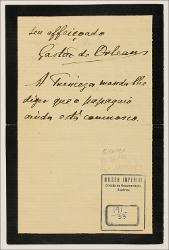 seu affeiçoado
Gastão de Orleans
A Princeza manda lhe
dizer que o papagaio
ainda está comnosco.
MUSEU IMPERIAL